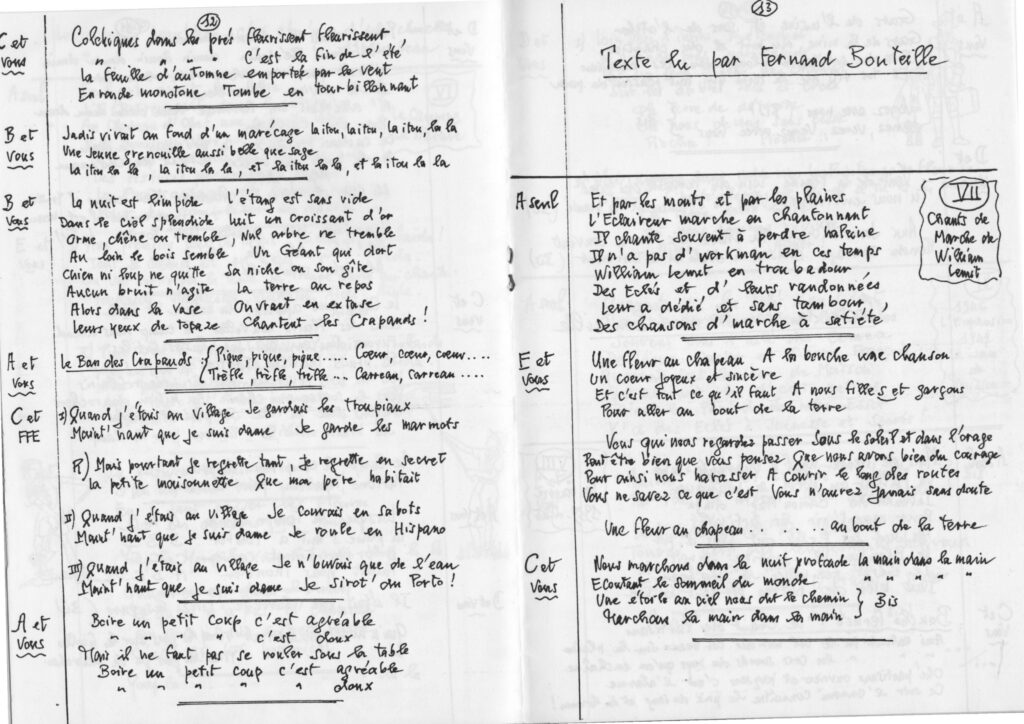 12
C et Vous
Colchiques dans les prés fleurissent fleurissent
" " " " C'est la fin de l'été
la feuille d'automne emportée par le vent
En ronde monotone Tombe en tourbillonnant
B et Vous
Jadis vivait au fond d'un marécage la itou, la itou, la itou la la
Une jeune grenouille aussi belle que sage
la itou la la, la itou la la, et la itou la la, et la itou la la
B et Vous
La nuit est limpide L'étang est sans vide
Dans le Ciel splendide luit un croissant d'or
Orme, chêne ou tremble, Nul arbre ne tremble
Au loin le bois semble Un Géant qui dort
Chien ni loup ne quitte Sa niche ou son gîte
Aucun bruit n'agite La terre au repos
Alors dans la vase Ouvrant en extase
Leurs yeux de topaze Chantent les Crapauds !
A et Vous
Le Ban des Crapauds : Pique, pique, pique ..... Coeur, coeur, coeur ....
Trèfle, trèfle, trèfle ... Carreau, Carreau ....
C et FFE
I) Quand j'étais au village Je gardais les troupiaux
Maint'nant que je suis dame Je garde les marmots
R) Mais pourtant je regrette tant, je regrette en secret
la petite maisonnette Que mon père habitait
II) Quand j'étais au village Je courais en sabots
Maint'nant que je suis dame Je roule en Hispano
III) Quand j'étais au village Je n'buvais que de l'eau
Maint'nant que je suis dame Je sirot' du Porto !
A et Vous
Boire un petit coup c'est agréable
" " " " c'est doux
Mais il ne faut pas se rouler sous la table
Boire un petit coup c'est agréable
" " " " " doux
13
Texte lu par Fernand Bouteille
VII
Chants de
Marche de
William
Lemit
A seul
Et par les monts et par les plaines
L'Eclaireur marche en chantonnant
Il chante souvent à perdre haleine
Il n'a pas d'workman en ces temps
William Lemit en troubadour
Des Eclés et d' leurs randonnées
Leur a dédié et sans tambour,
Des chansons d'marche à satiété
E et Vous
Une fleur au chapeau A la bouche une chanson
Un coeur joyeux et sincère
Et c'est tout ce qu'il faut A nous filles et garçons
Pour aller au bout de la terre
Vous qui nous regardez passer Sous le soleil et dans l'orage
Peut être bien que vous pensez Que nous avons bien du courage
Pour ainsi nous harasser A courir le long des routes
Vous ne savez ce que c'est Vous n'aurez jamais sans doute
Une fleur au chapeau ... ... au bout de la terre
C et Vous
Nous marchons dans la nuit profonde la main dans la main
Ecoutant le sommeil du monde " " " " "
Une étoile au ciel nous dit le chemin } Bis
Marchons la main dans la main